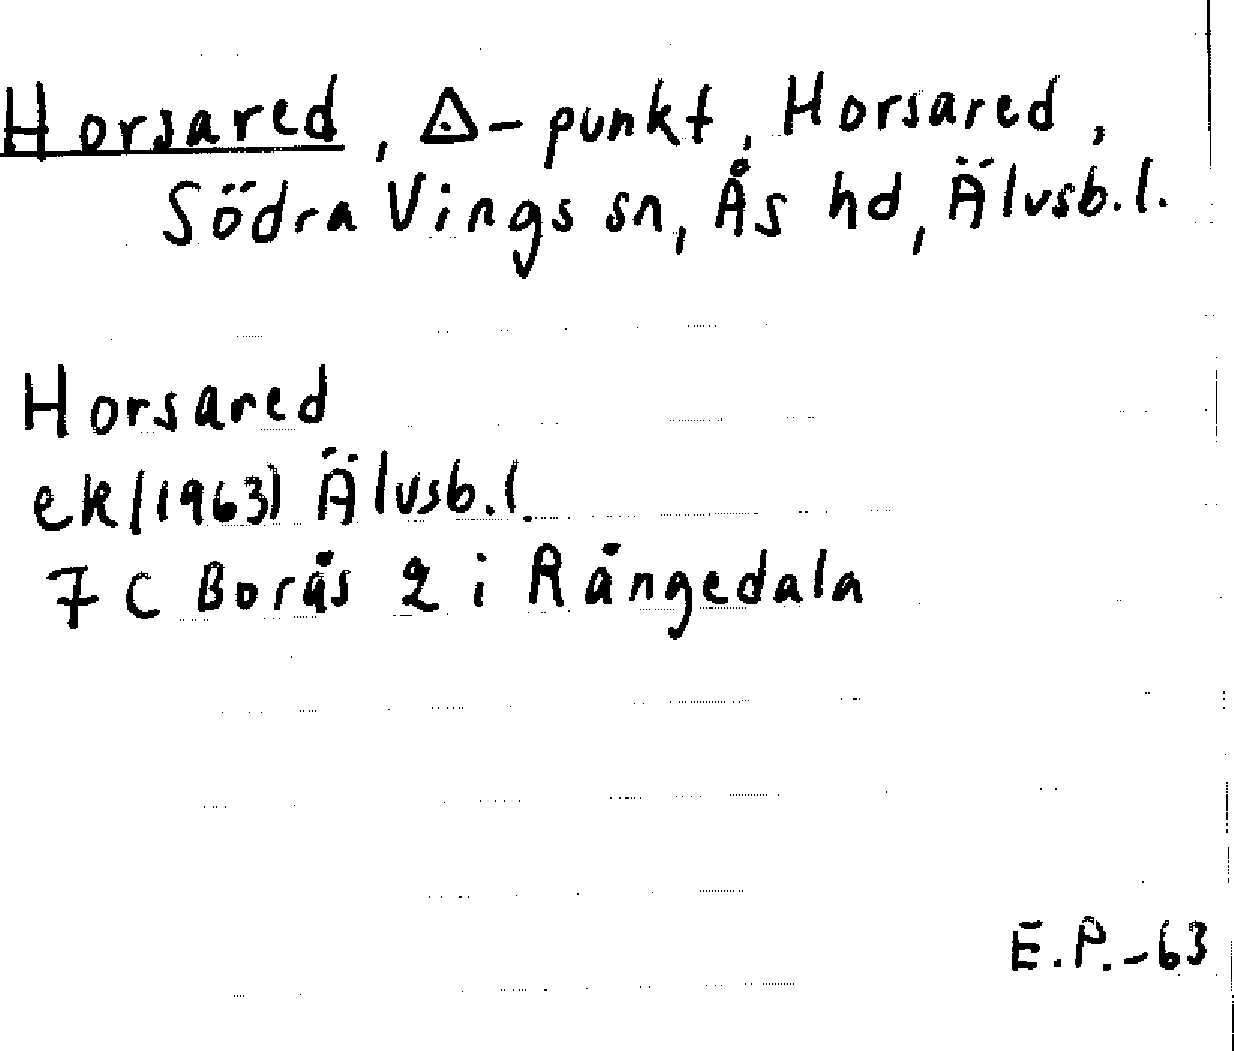 Horsared, △-punkt, Horsared,
Södra Vings sn, Ås hd, Älvsb.l.
Horsared
ek/(1963) Älvsb.l.
7 C Borås 2 i Rångedala
E.P.-63